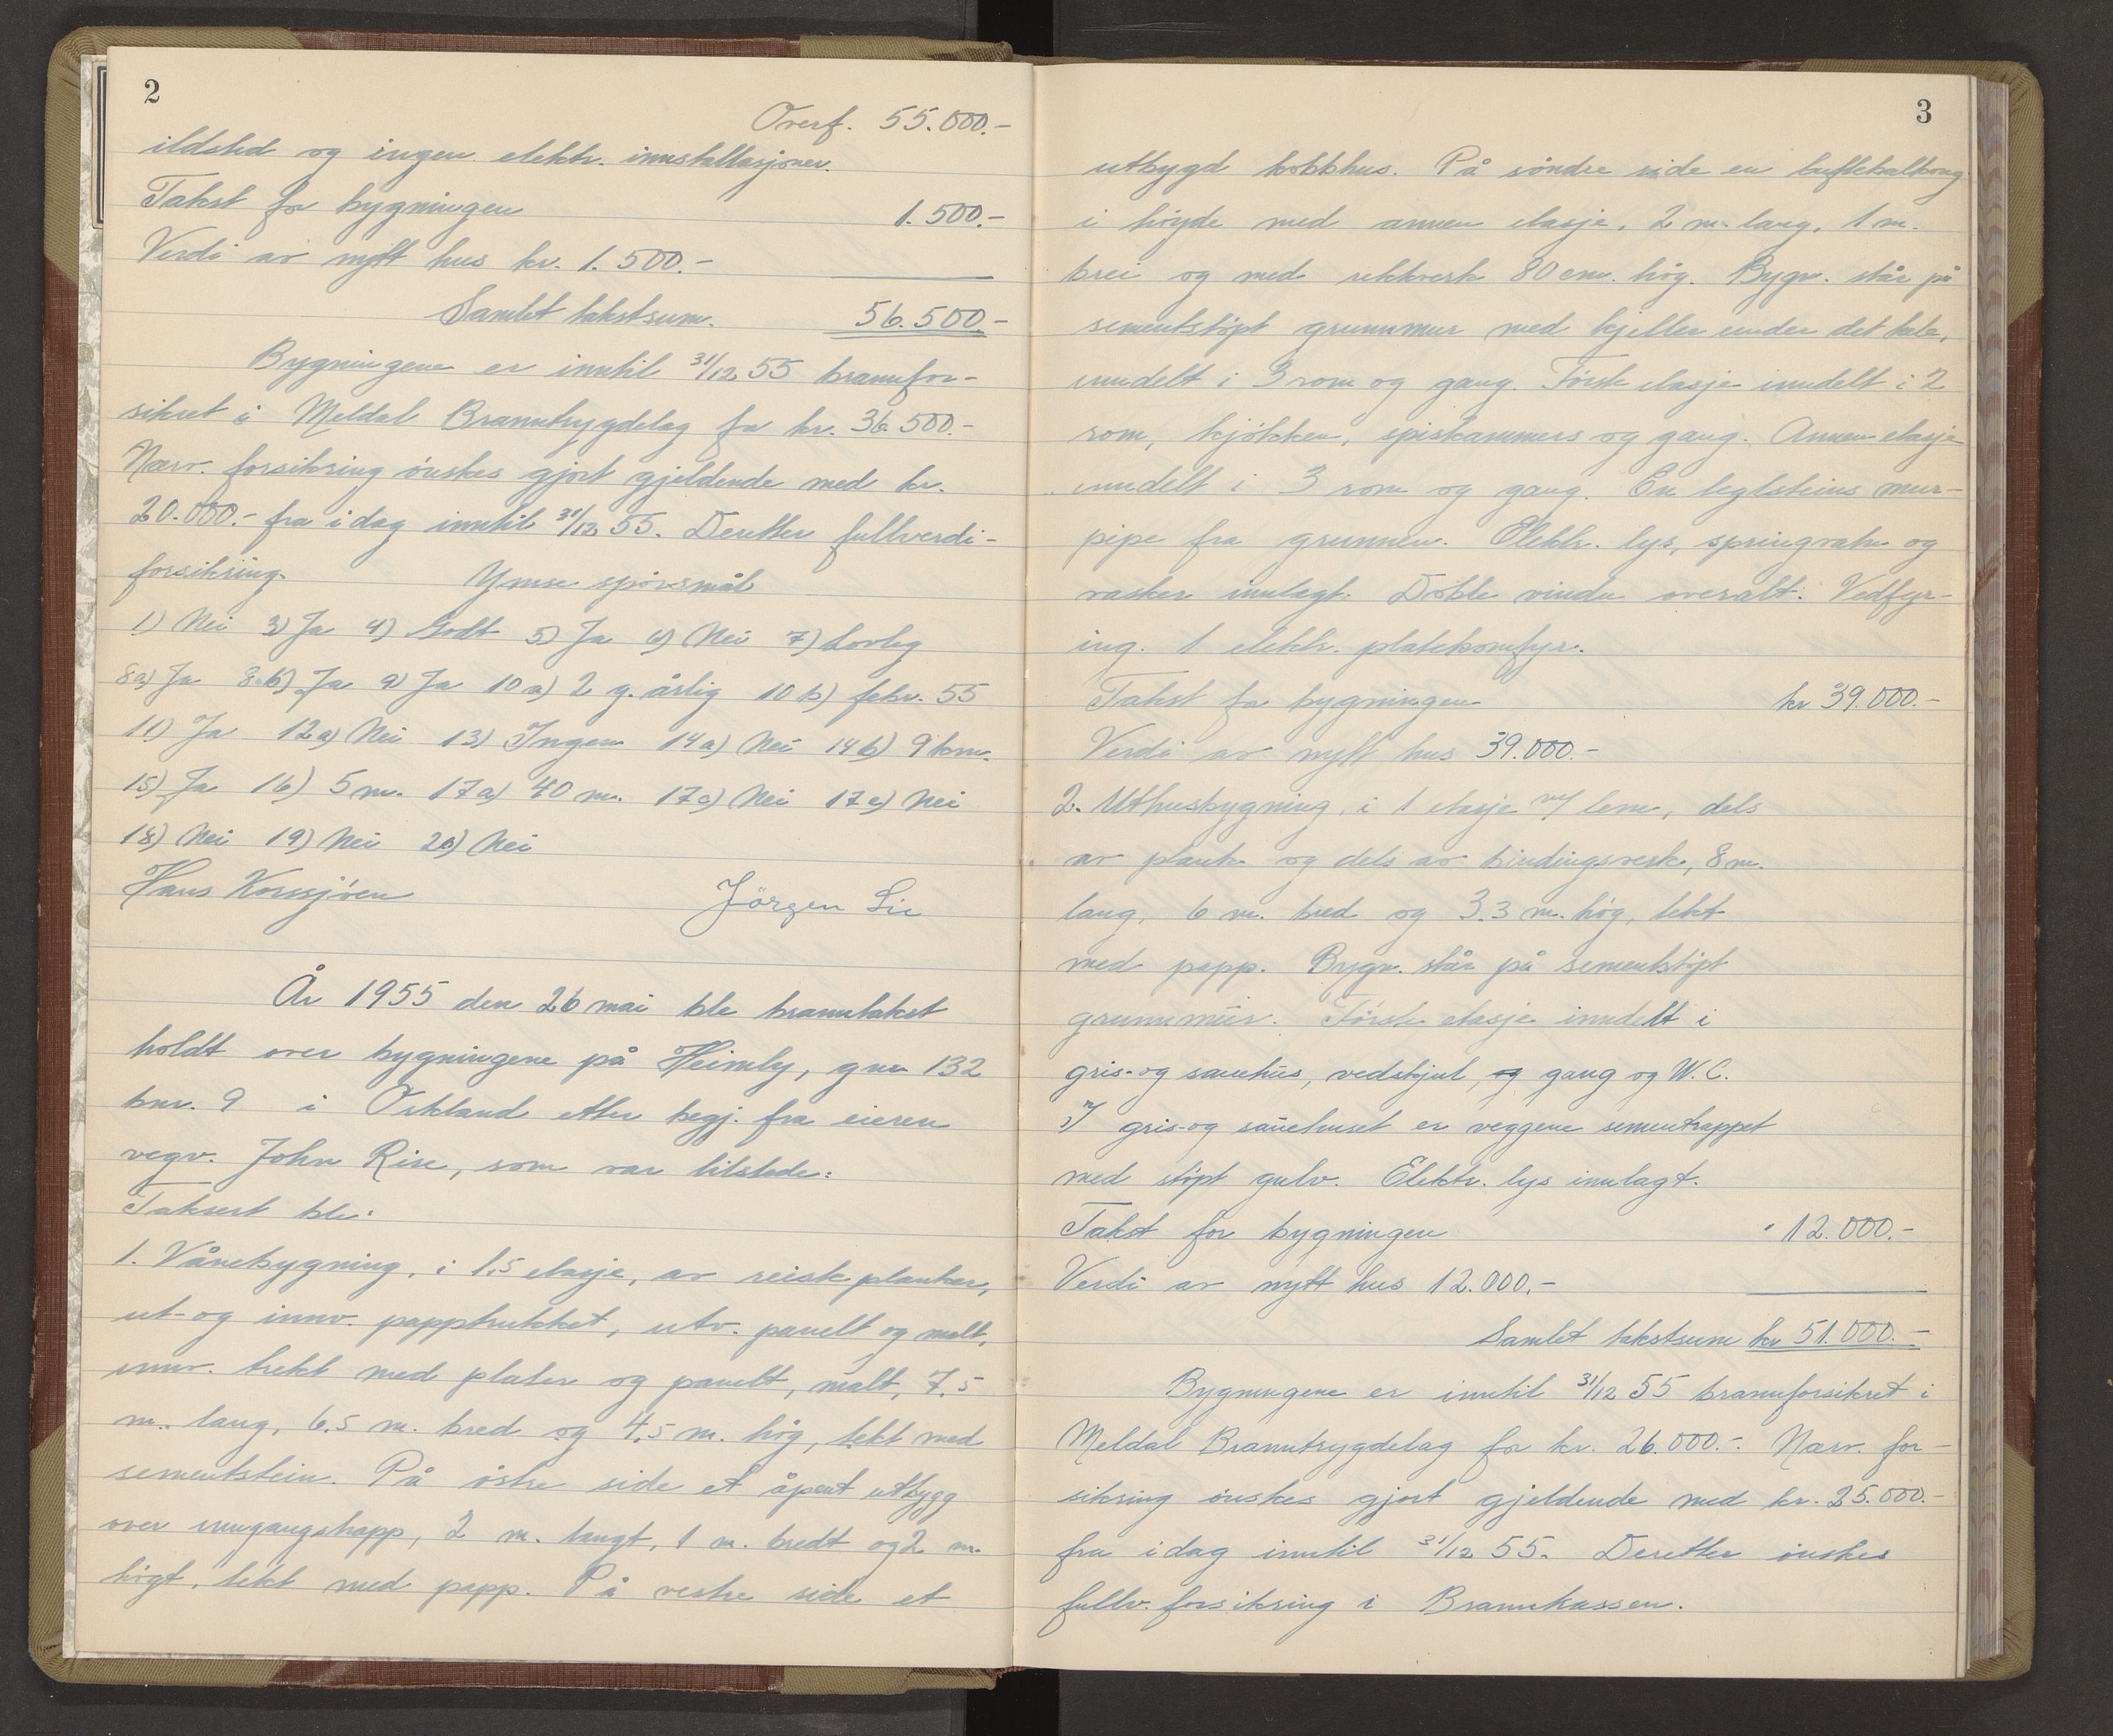 2
Overf. 55.000.-
ildsted og ingen elektr. innstallasjoner.
Takst for bygningen 1.500.-
Verdi av nytt hus kr. 1.500.-
Samlet takstsum. 56.500.-
Bygningene er inntil 31/12 55 brannfor-
sikret i Meldal Branntrygdelag for kr. 36.500.-
Nærv. forsikring ønskes gjort gjeldende med kr.
20.000.- fra i dag inntil 31/12 55. Deretter fullverdi-
forsikring. Ymse spörsmål
1) Nei 3) Ja 4) Godt 5) Ja 6) Nei 7) Lovleg
8a) Ja 8.b) Ja 9) Ja 10a) 2 g. årlig 10 b) febr. 55
11) Ja 12a) Nei 13) Ingen 14a) Nei 14b) 9 km.
15) Ja 16) 5 m. 17a) 40 m. 17c) Nei 17e) Nei
18) Nei 19) Nei 20) Nei
Hans Korssjöen Jörgen Lie
År 1955 den 26 mai ble branntakst
holdt over bygningene på Heimly, gnr 132
bnr. 9 i Orkland etter begj. fra eieren
vegv. John Rise, som var tilstede:
Taksert ble:
1. Vånebygning, i 1,5 etasje, av reiste planker,
ut- og innv. papptrukket, utv. panelt og malt,
innv. trekt med plater og panelt, målt, 7,5
m. lang, 6,5 m. bred og 4,5 m. høg, tekt med
sementstein. På østre side et åpent utbygg
over inngangstrapp, 2 m. langt, 1 m. bredt og 2 m.
högt, tekt med papp. På vestre side et
3
utbygd kokkhus. På söndre side en luftebalkong
i høyde med annen etasje, 2 m. lang, 1 m.
brei og med rekkverk 80 cm. høg. Bygn. står på
sementstöpt grunnmur med kjeller under det hele,
inndelt i 3 rom og gang. Første etasje inndelt i 2
rom, kjøkken, spiskammers og gang. Annen etasje
inndelt i 3 rom og gang. En teglsteins mur-
pipe fra grunnen. Elektr. lys, springvatn og
vasker innlagt. Doble vindu overalt. Vedfyr-
ing. 1 elektr. platekomfyr.
Takst for bygningen kr 39.000.-
Verdi av nytt hus 39.000.-
2. Uthusbygning, i 1 etasje m/ lem, dels
av plank og dels av bindingsverk, 8 m.
lang, 6 m. bred og 3.3 m. høg, tekt
med papp. Bygn. står på sementstöpt
grunnmur. Første etasje inndelt i
gris- og sauehus, vedskjul, og gang og W.C.
I gris- og sauehuset er veggene sementrappet
med støpt gulv. Elektr. lys innlagt.
Takst for bygningen " 12.000.-
Verdi av nytt hus 12.000.-
Samlet takstsum kr 51.000.-
Bygningene er inntil 31/12 55 brannforsikret i
Meldal Branntrygdelag for kr. 26.000.-. Nærv. for-
sikring ønskes gjort gjeldende med kr. 25.000.-
fra i dag inntil 31/12 55. Deretter ønskes
fullv. forsikring i Brannkassen.